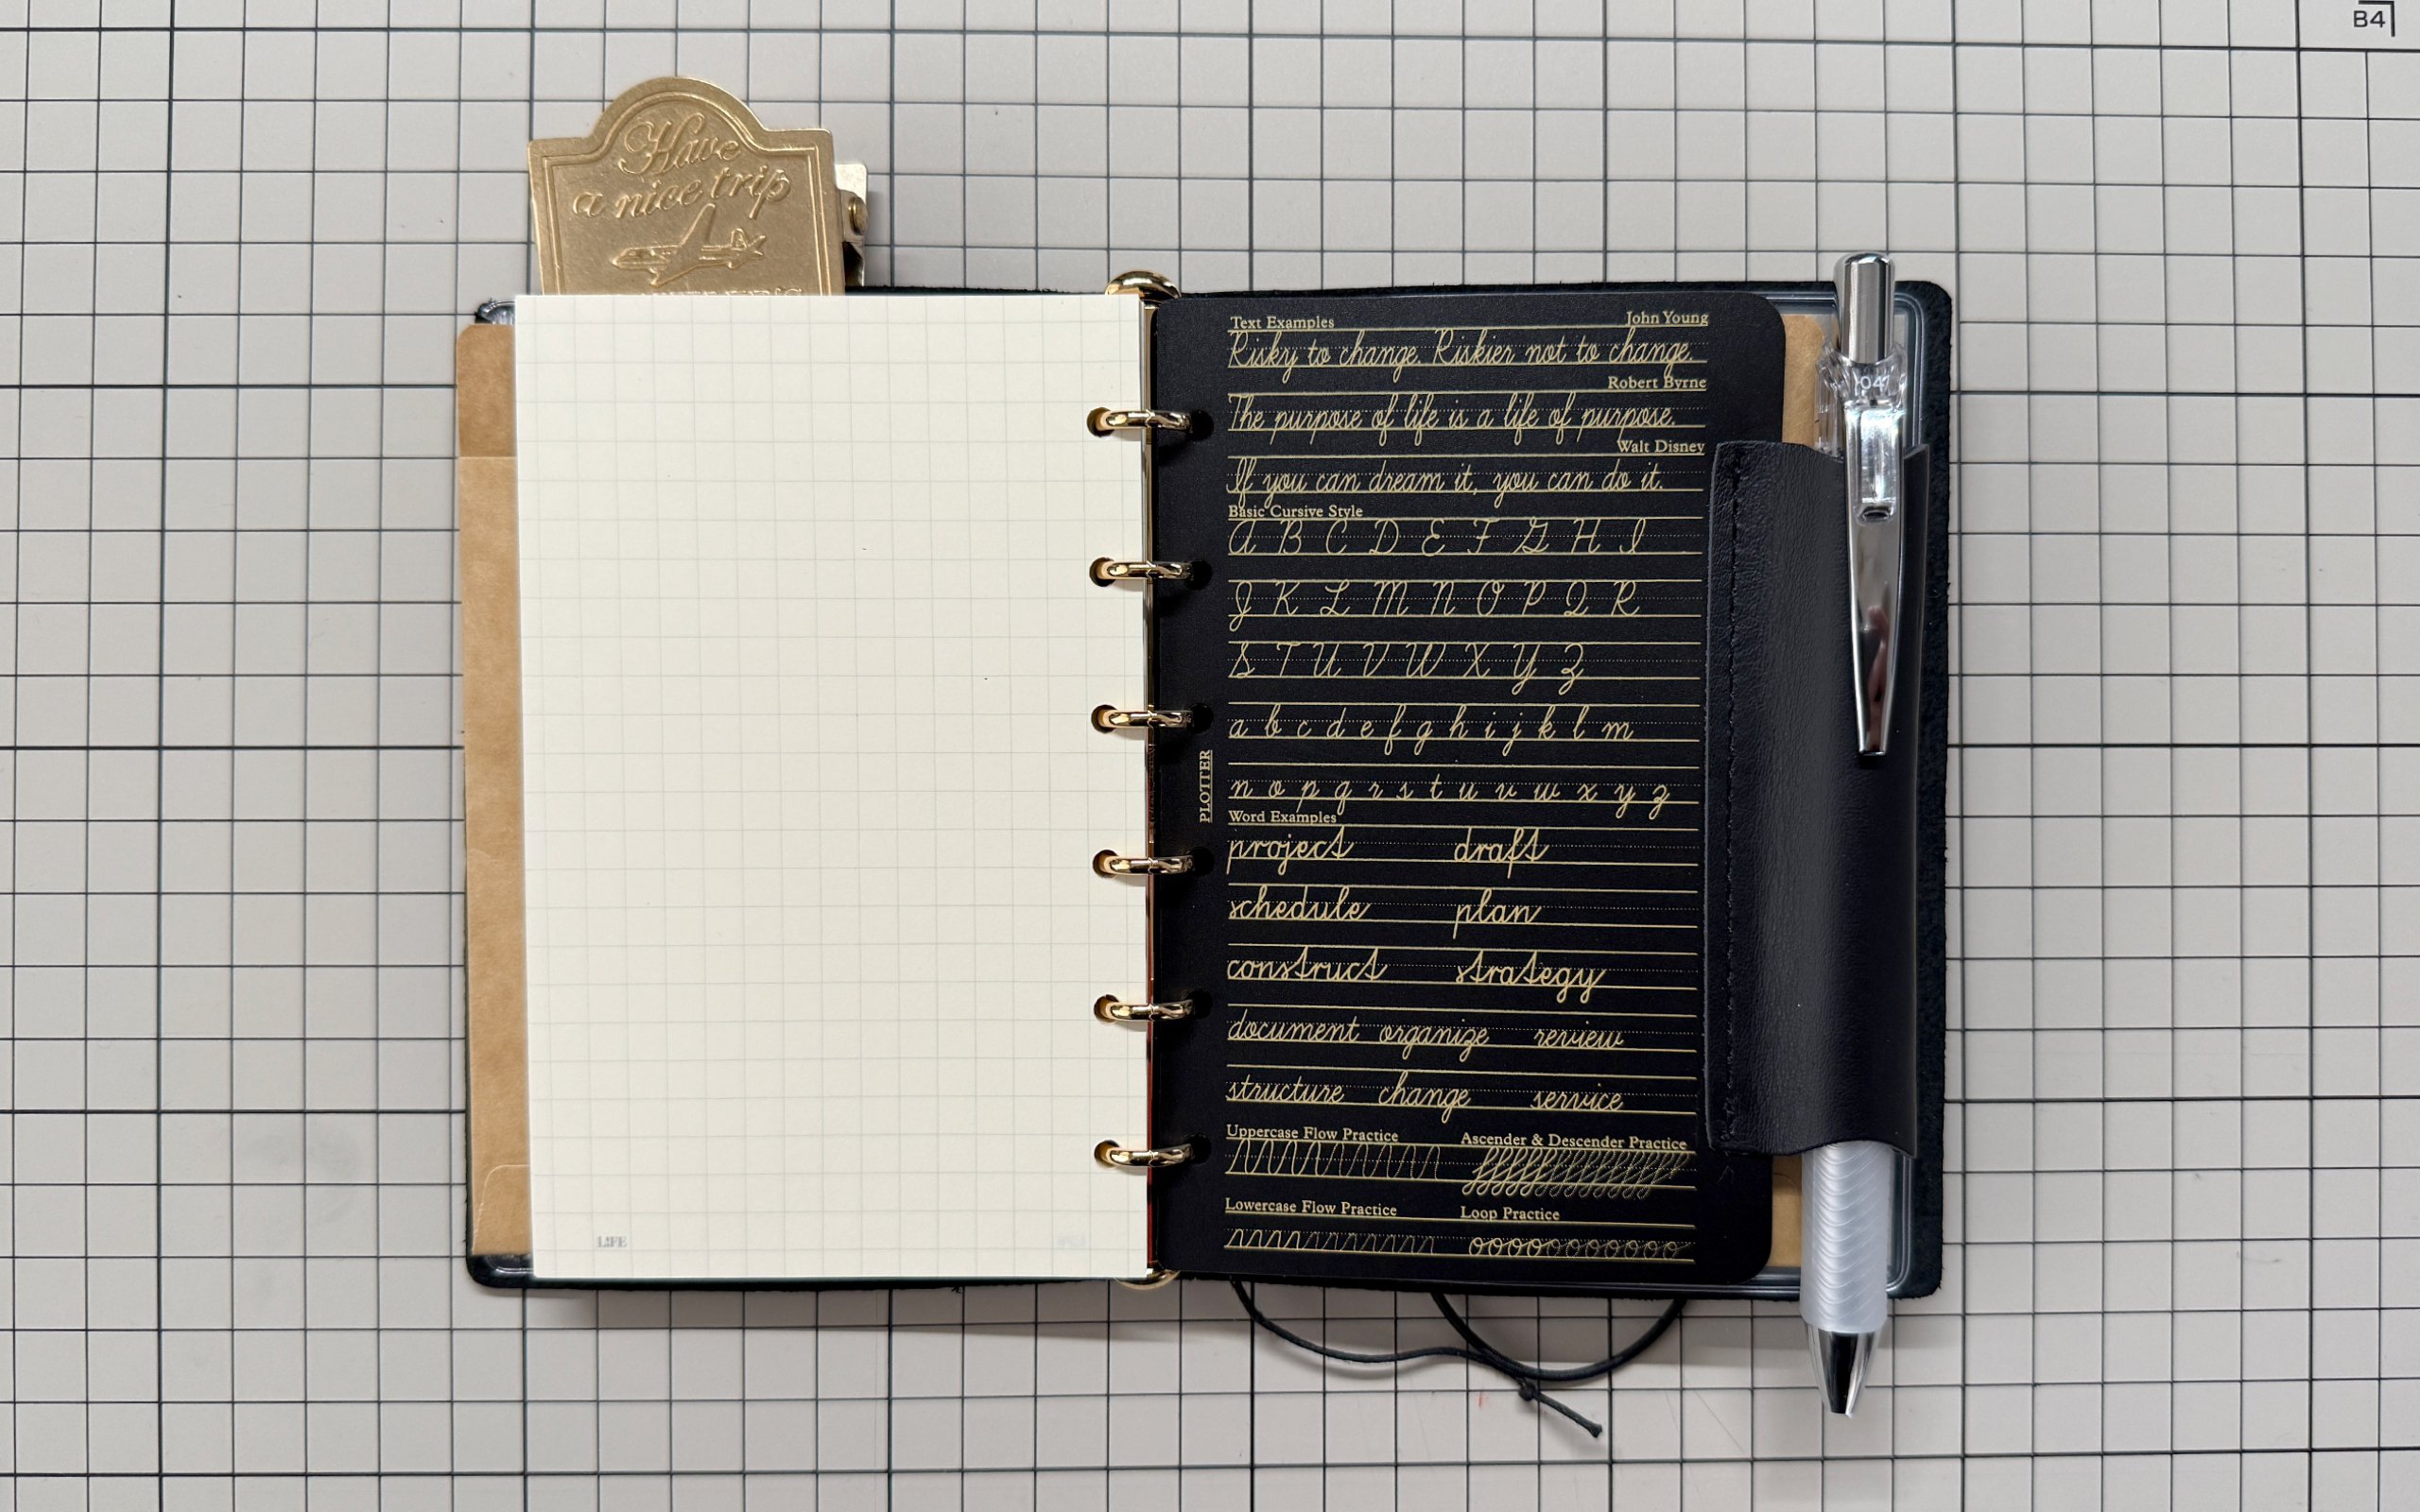 B4
Have
a nice trip
LIFE
PLOTTER
Text Examples John Young
Risky to change. Riskier not to change.
Robert Byrne
The purpose of life is a life of purpose.
Walt Disney
If you can dream it, you can do it.
Basic Cursive Style
A B C D E F G H I
J K L M N O P Q R
S T U V W X Y Z
a b c d e f g h i j k l m
n o p q r s t u v w x y z
Word Examples
project draft
schedule plan
construct strategy
document organize review
structure change service
Uppercase Flow Practice Ascender & Descender Practice
Lowercase Flow Practice Loop Practice
04